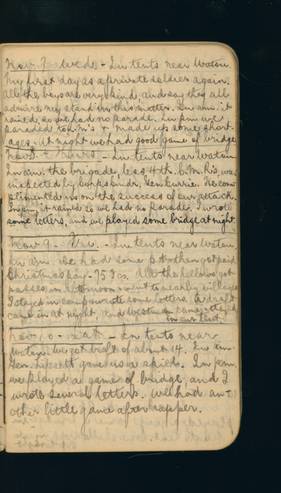 Nov. 7 - Weds - In tents near Watou
My first day as a private soldier again.
All the boys are very kind, and say they all
admire my stand in this matter. In a.m. it
rained so we had no parade. In p.m. we
paraded to Q.M's & made up some short-
ages. At night we had good game of bridge
Nov. 8 - Thurs - In tents near Watou
In a.m. the brigade, less 4th C.M.R's, was
inspected by Corps Cmdr. Gen. Currie. He com-
plimented us on the success of our attack.
In p.m. it rained so we had no parade. I wrote
some letters, and we played some bridge at night.
Nov 9 - Fri. - In tents near Watou
In a.m. we had some P.T. then got paid
Christmas pay - 75 Frs. All the fellows got
passes in afternoon & went to nearby villages
I stayed in camp & wrote some letters. A draft
came in at night, and
in our tent.
Nov. 10 - Sat - In tents near
Watou. We got draft of about 14. In a.m.
Gen. gave us a spiel. In p.m.
we played a game of bridge, and I
wrote several letters. We had an-
other little game after supper.